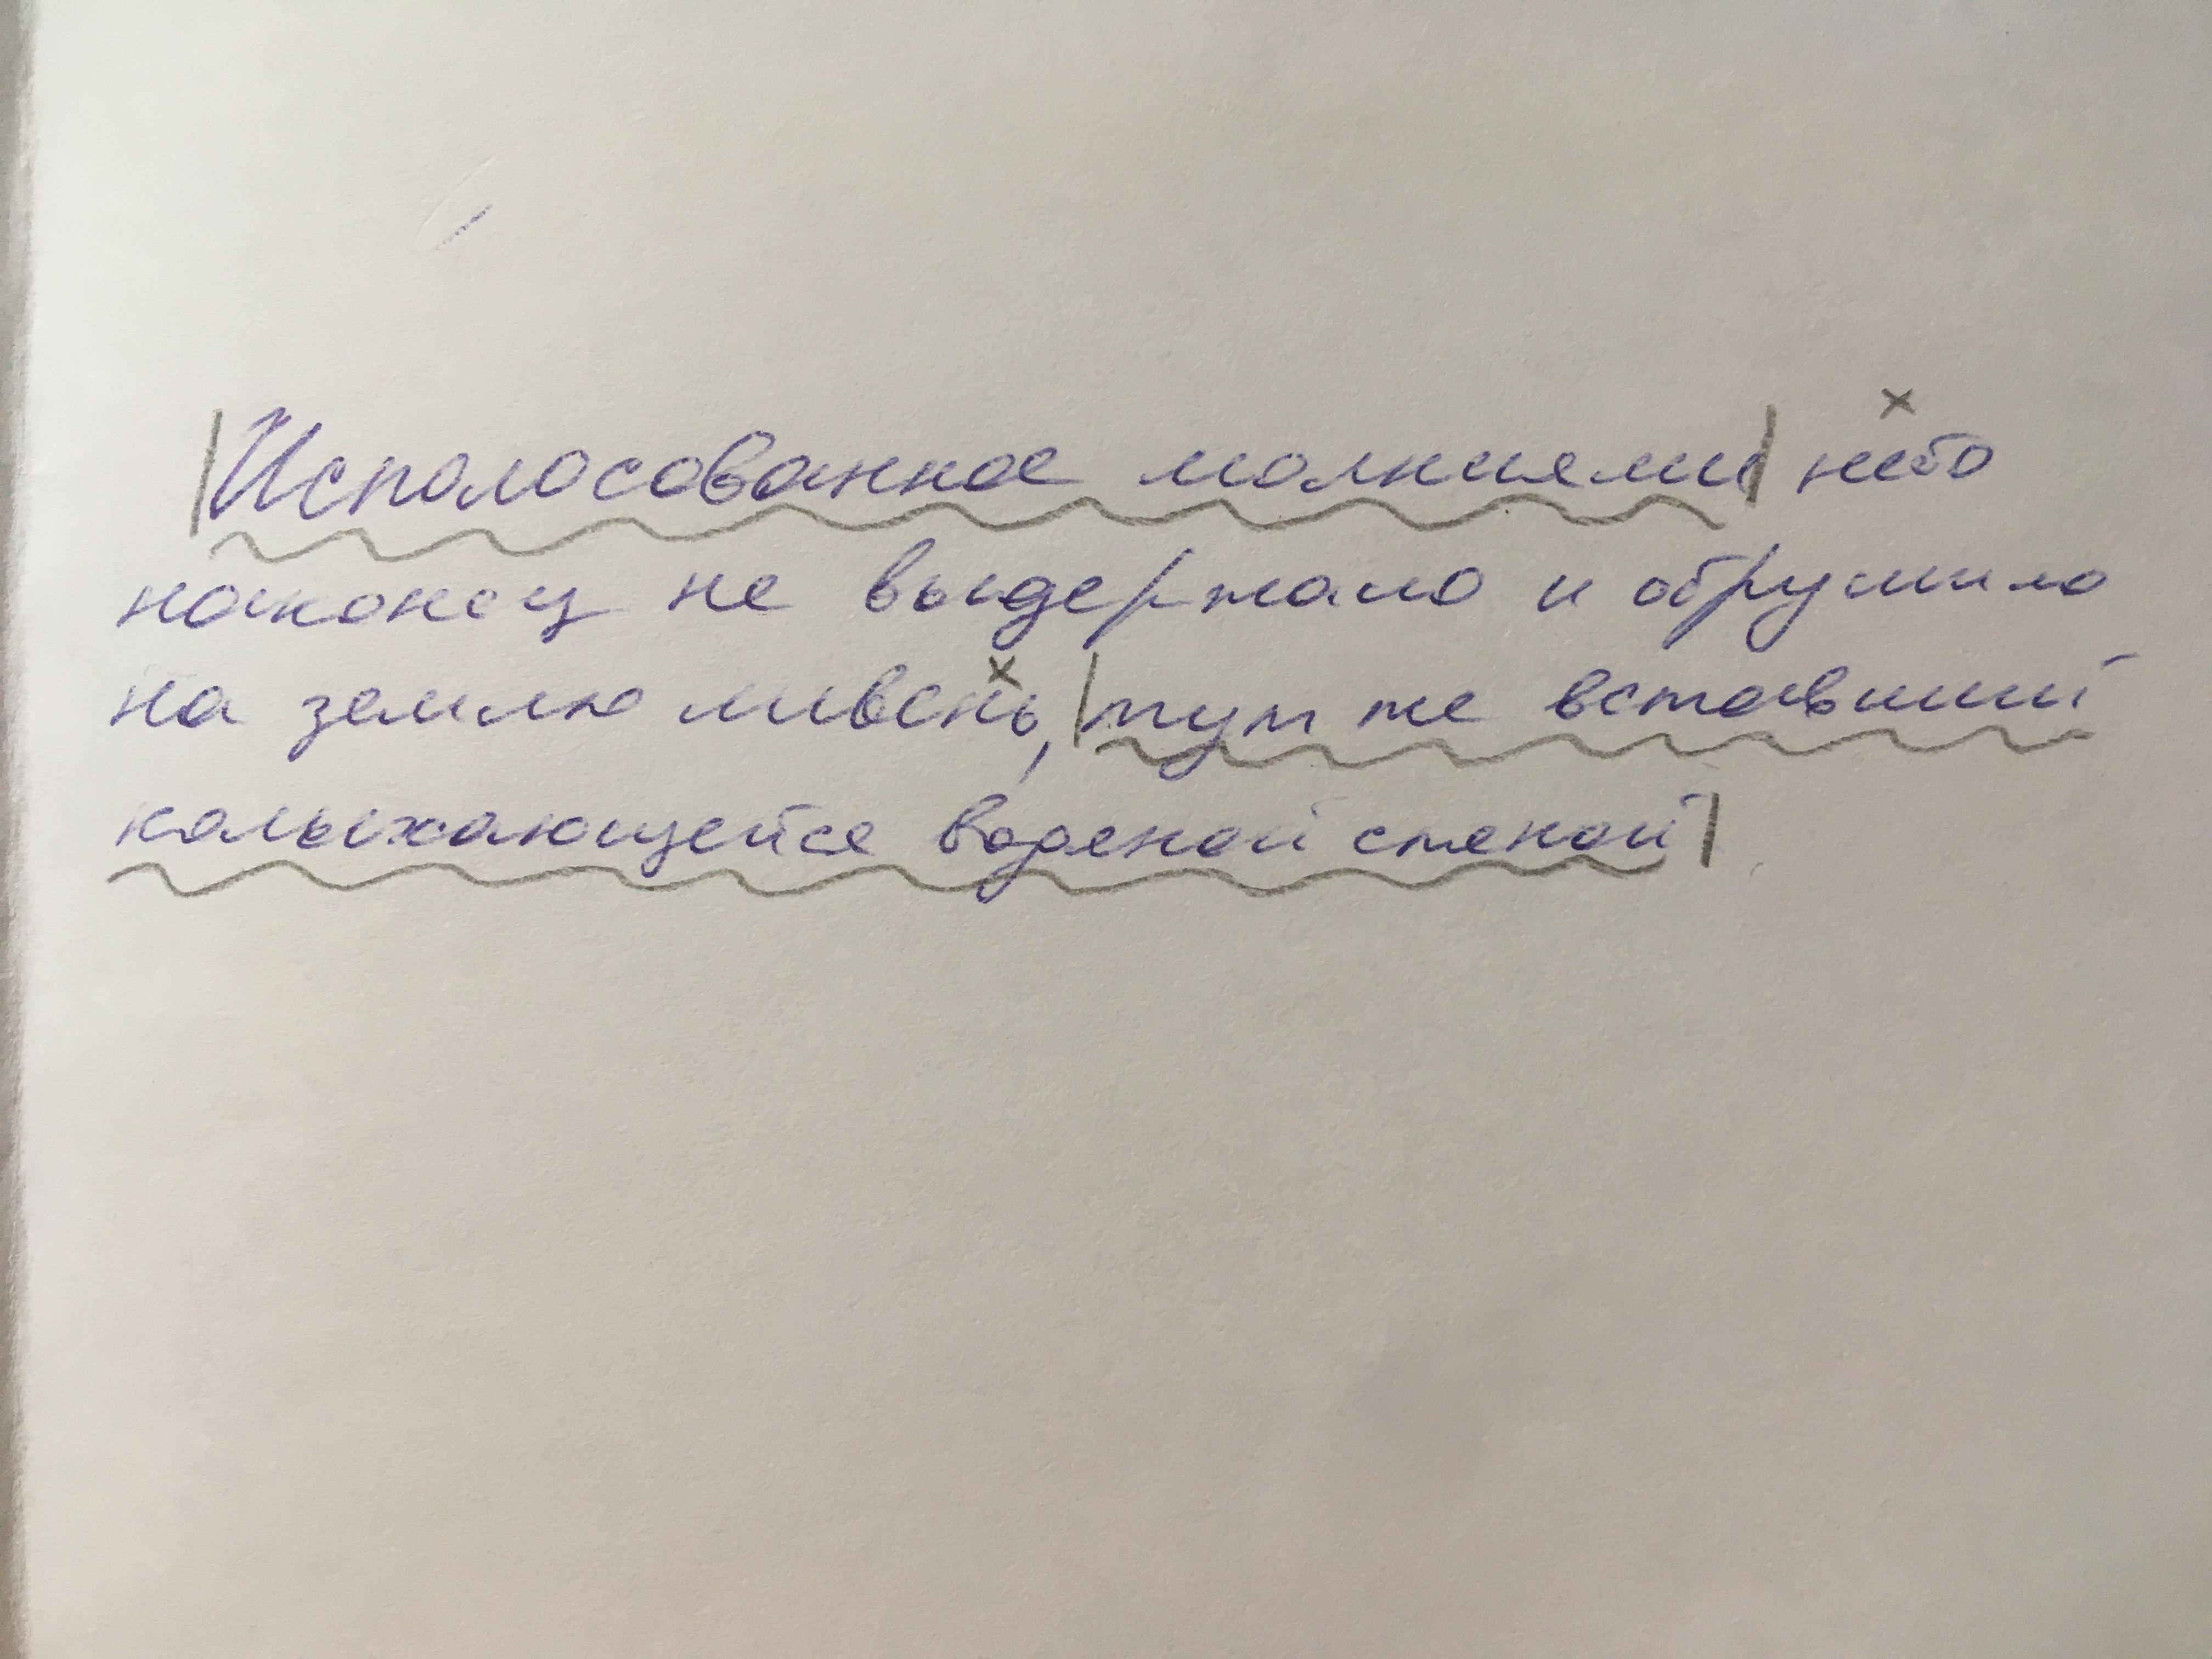 Исполосованное молниями небо
наконец не выдержало и обрушило
на землю ливень, тут же вставший
колыхающейся водяной стеной.